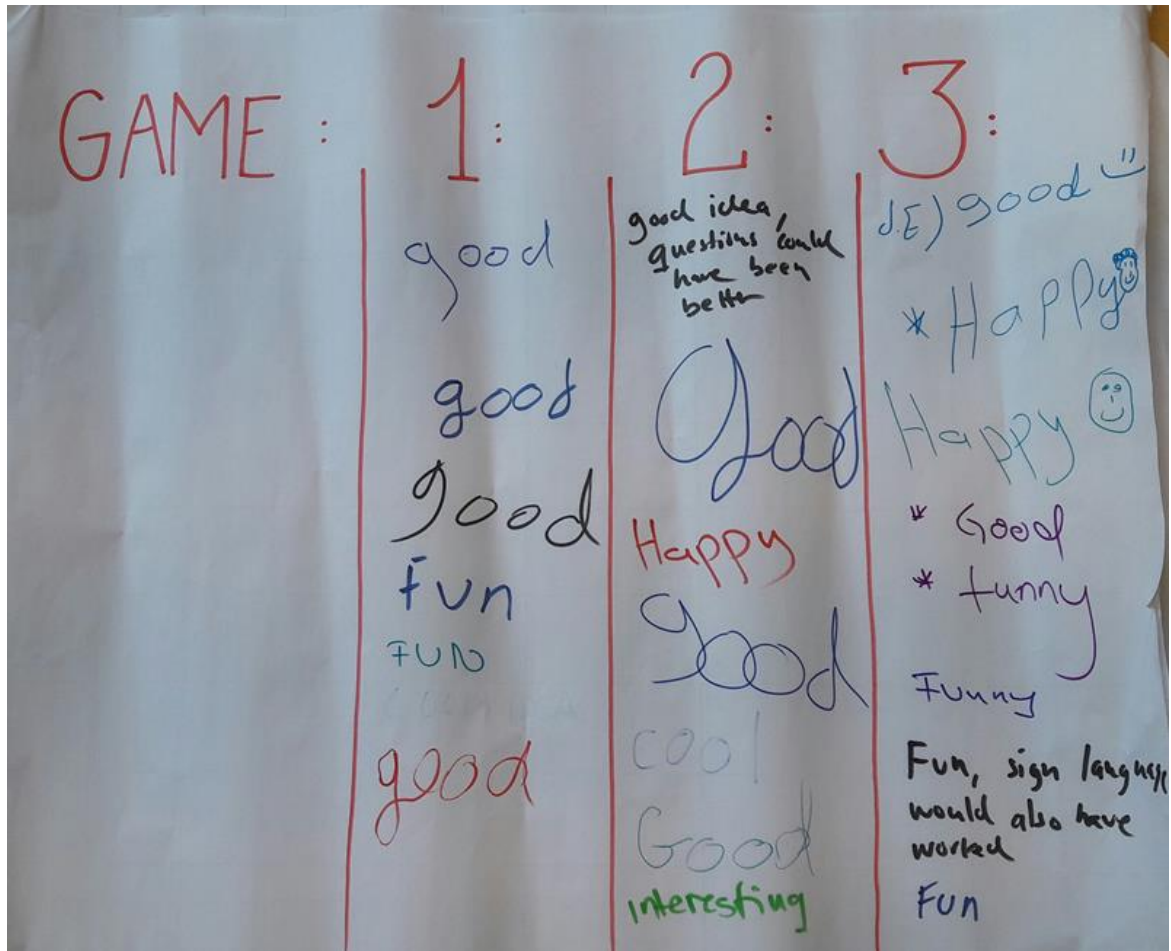 GAME : 1: 2: 3:
good
good
good
Fun
FUN
good
good idea,
questions could
have been
better
Good
Happy
good
cool
Good
interesting
J.E) good
* Happy
Happy
* Good
* funny
Funny
Fun, sign language
would also have
worked
Fun